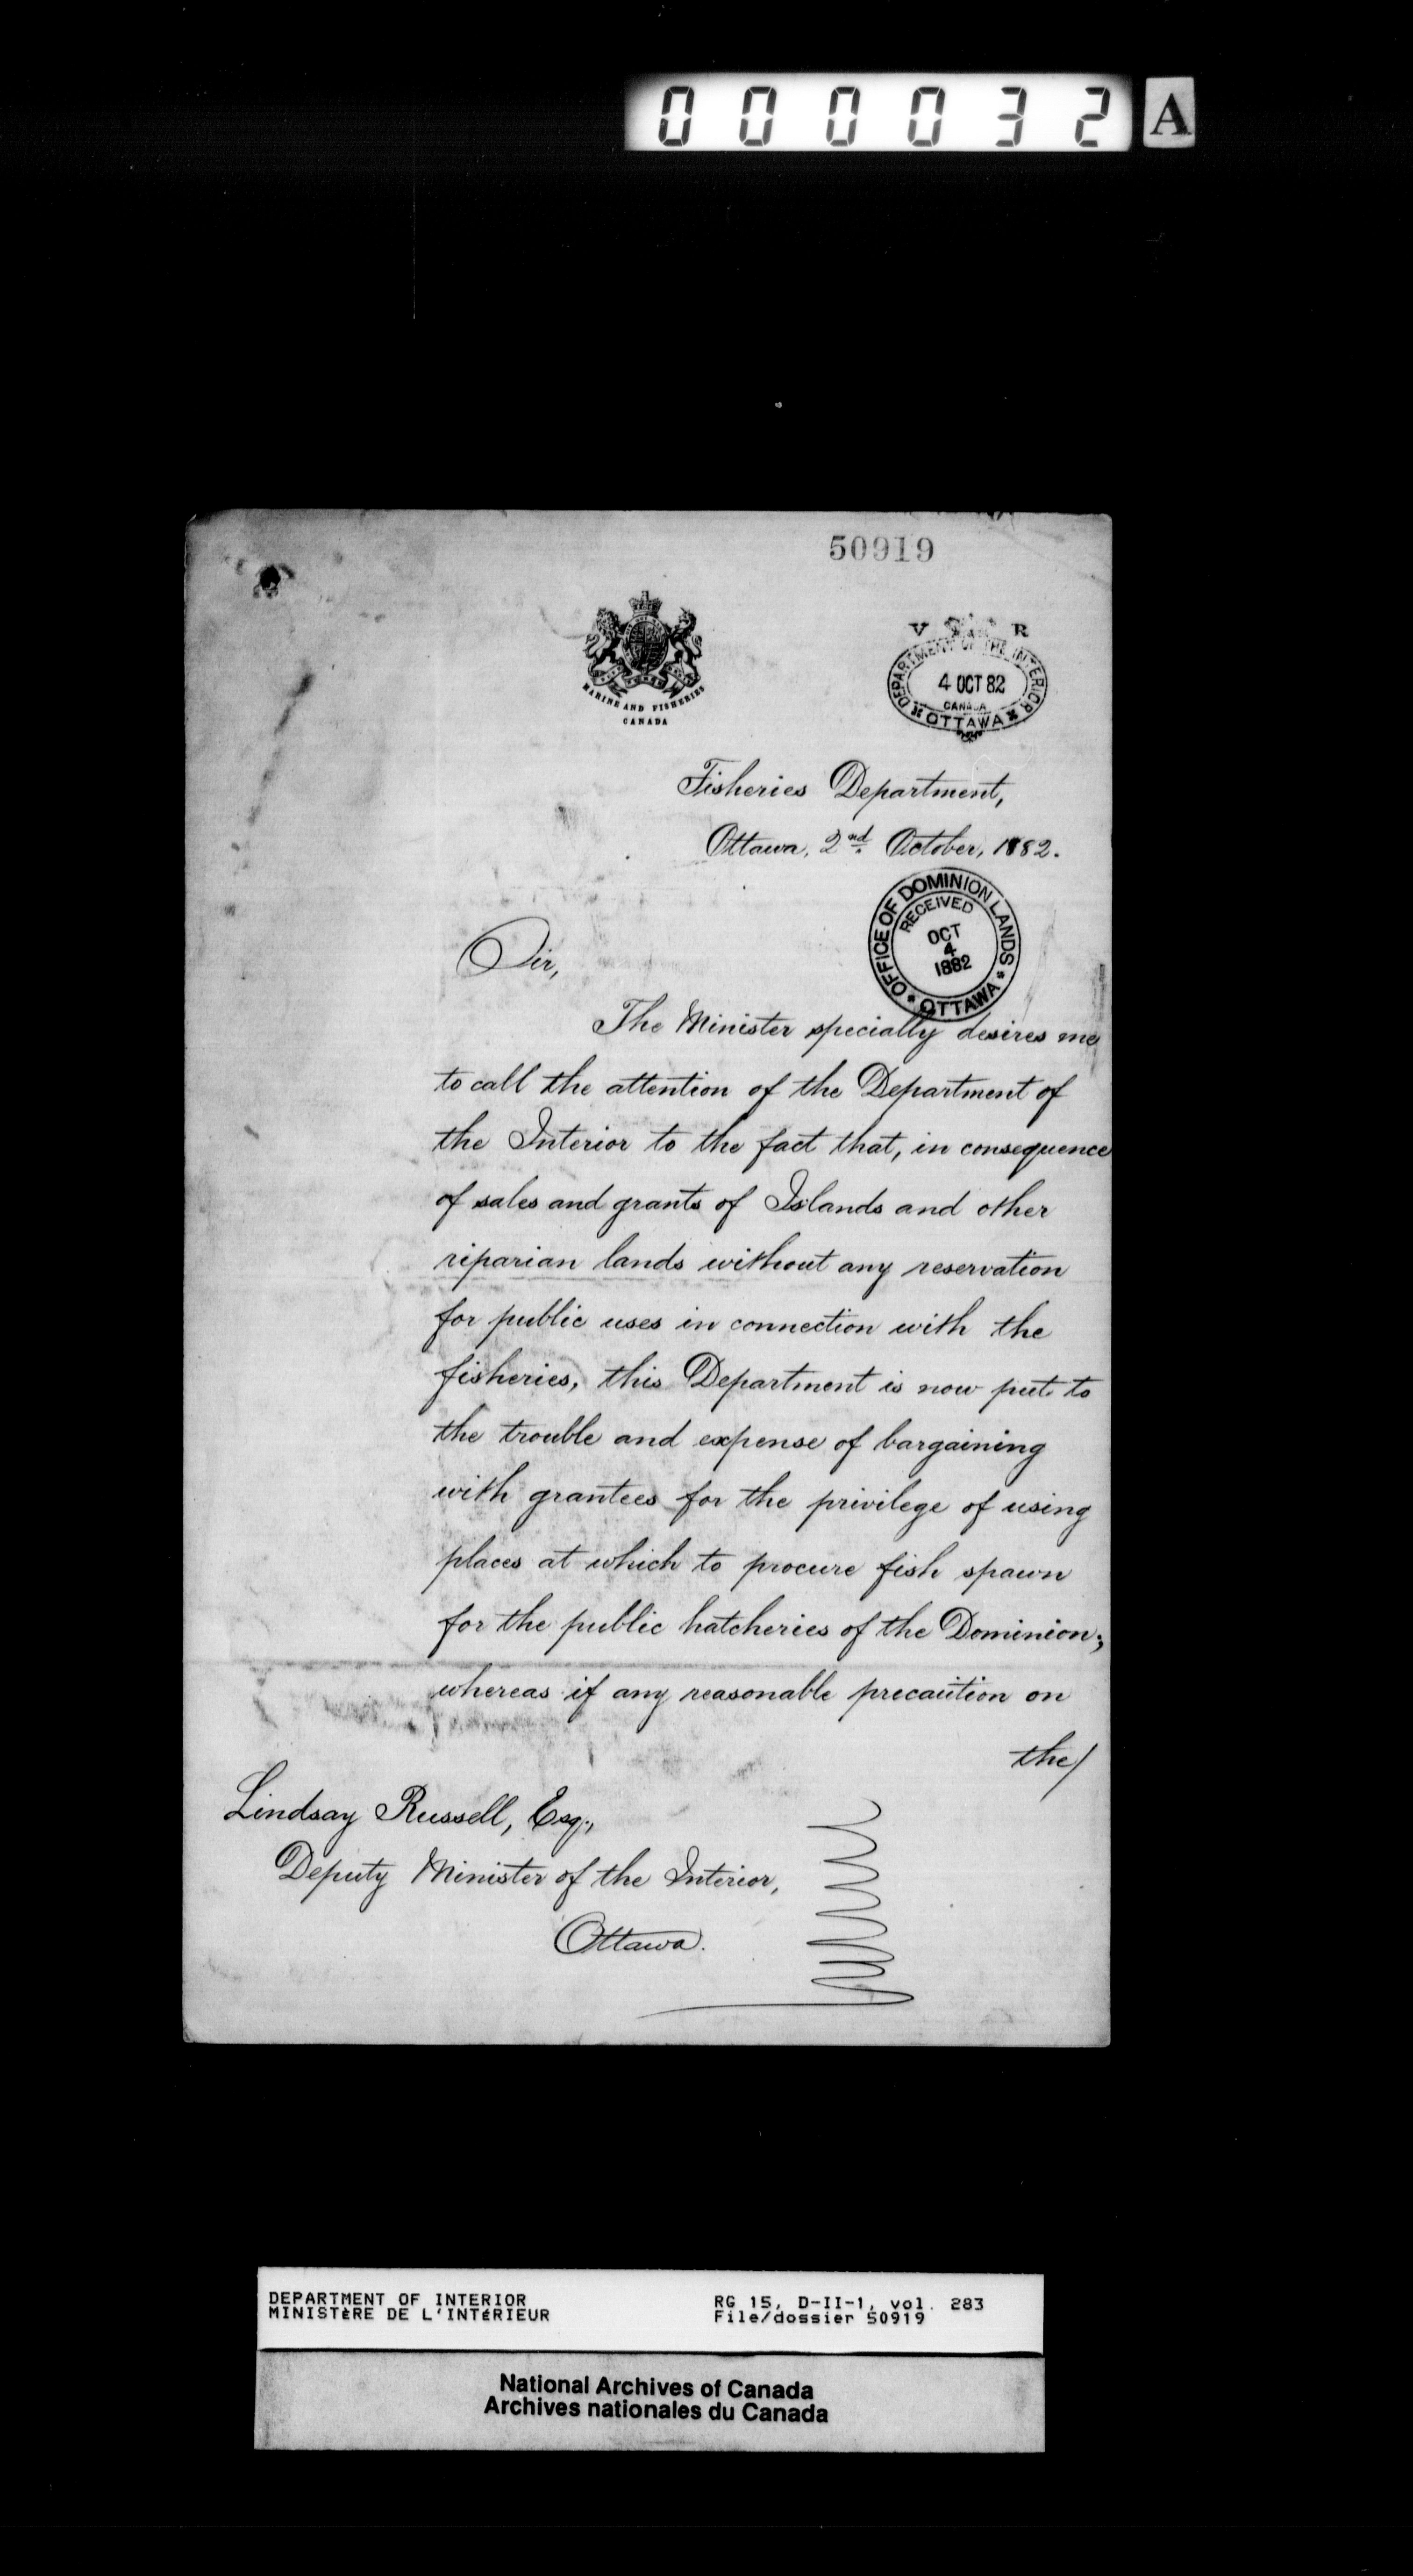 000032 A
50919
MARINE AND FISHERIES
CANADA
V R
DEPARTMENT OF THE INTERIOR
4 OCT 82
CANADA
OTTAWA
Fisheries Department,
Ottawa, 2nd October, 1882.
OFFICE OF DOMINION LANDS
RECEIVED
OCT
4
1882
OTTAWA
Sir,
The Minister specially desires me
to call the attention of the Department of
the Interior to the fact that, in consequence
of sales and grants of Islands and other
riparian lands without any reservation
for public uses in connection with the
fisheries, this Department is now put to
the trouble and expense of bargaining
with grantees for the privilege of using
places at which to procure fish spawn
for the public hatcheries of the Dominion;
whereas if any reasonable precaution on
the/
Lindsay Russell, Esq.,
Deputy Minister of the Interior,
Ottawa.
DEPARTMENT OF INTERIOR RG 15, D-II-1, vol. 283
MINISTÈRE DE L'INTÉRIEUR File/dossier 50919
National Archives of Canada
Archives nationales du Canada